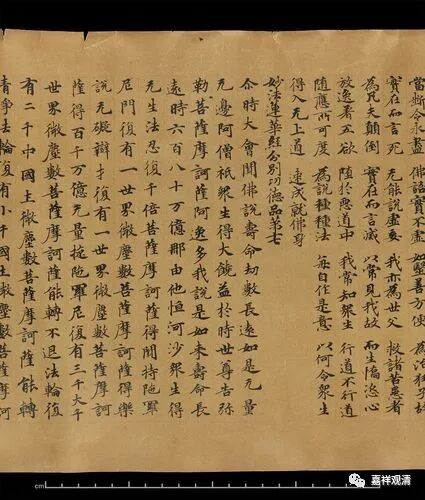 當断令永盡 佛語實不虛 如醫善方便 為治狂子故
實在而言死 无能說虛妄 我亦為世父 救諸苦患者
為凡夫顛倒 實在而言滅 以常見我故 而生憍恣心
放逸著五欲 墮於惡道中 我常知衆生 行道不行道
隨應所可度 為說種種法 每自作是意 以何令衆生
得入无上道 速成就佛身
妙法蓮華經分別功德品第十七
尒時大會聞佛說壽命劫數長遠如是无量
无邊阿僧祇衆生得大饒益於時世尊告弥
勒菩薩摩訶薩阿逸多我說是如來壽命長
遠時六百八十万億那由他恒河沙衆生得
无生法忍復千倍菩薩摩訶薩得聞持陁羅
尼門復有一世界微塵數菩薩摩訶薩得樂
說无礙辯才復有一世界微塵數菩薩摩訶
薩得百千万億无量旋陁羅尼復有三千大千
世界微塵數菩薩摩訶薩能轉不退法輪復
有二千中國土微塵數菩薩摩訶薩能轉
清淨法輪復有小千國土微塵數菩薩摩訶
cm
嘉祥观清